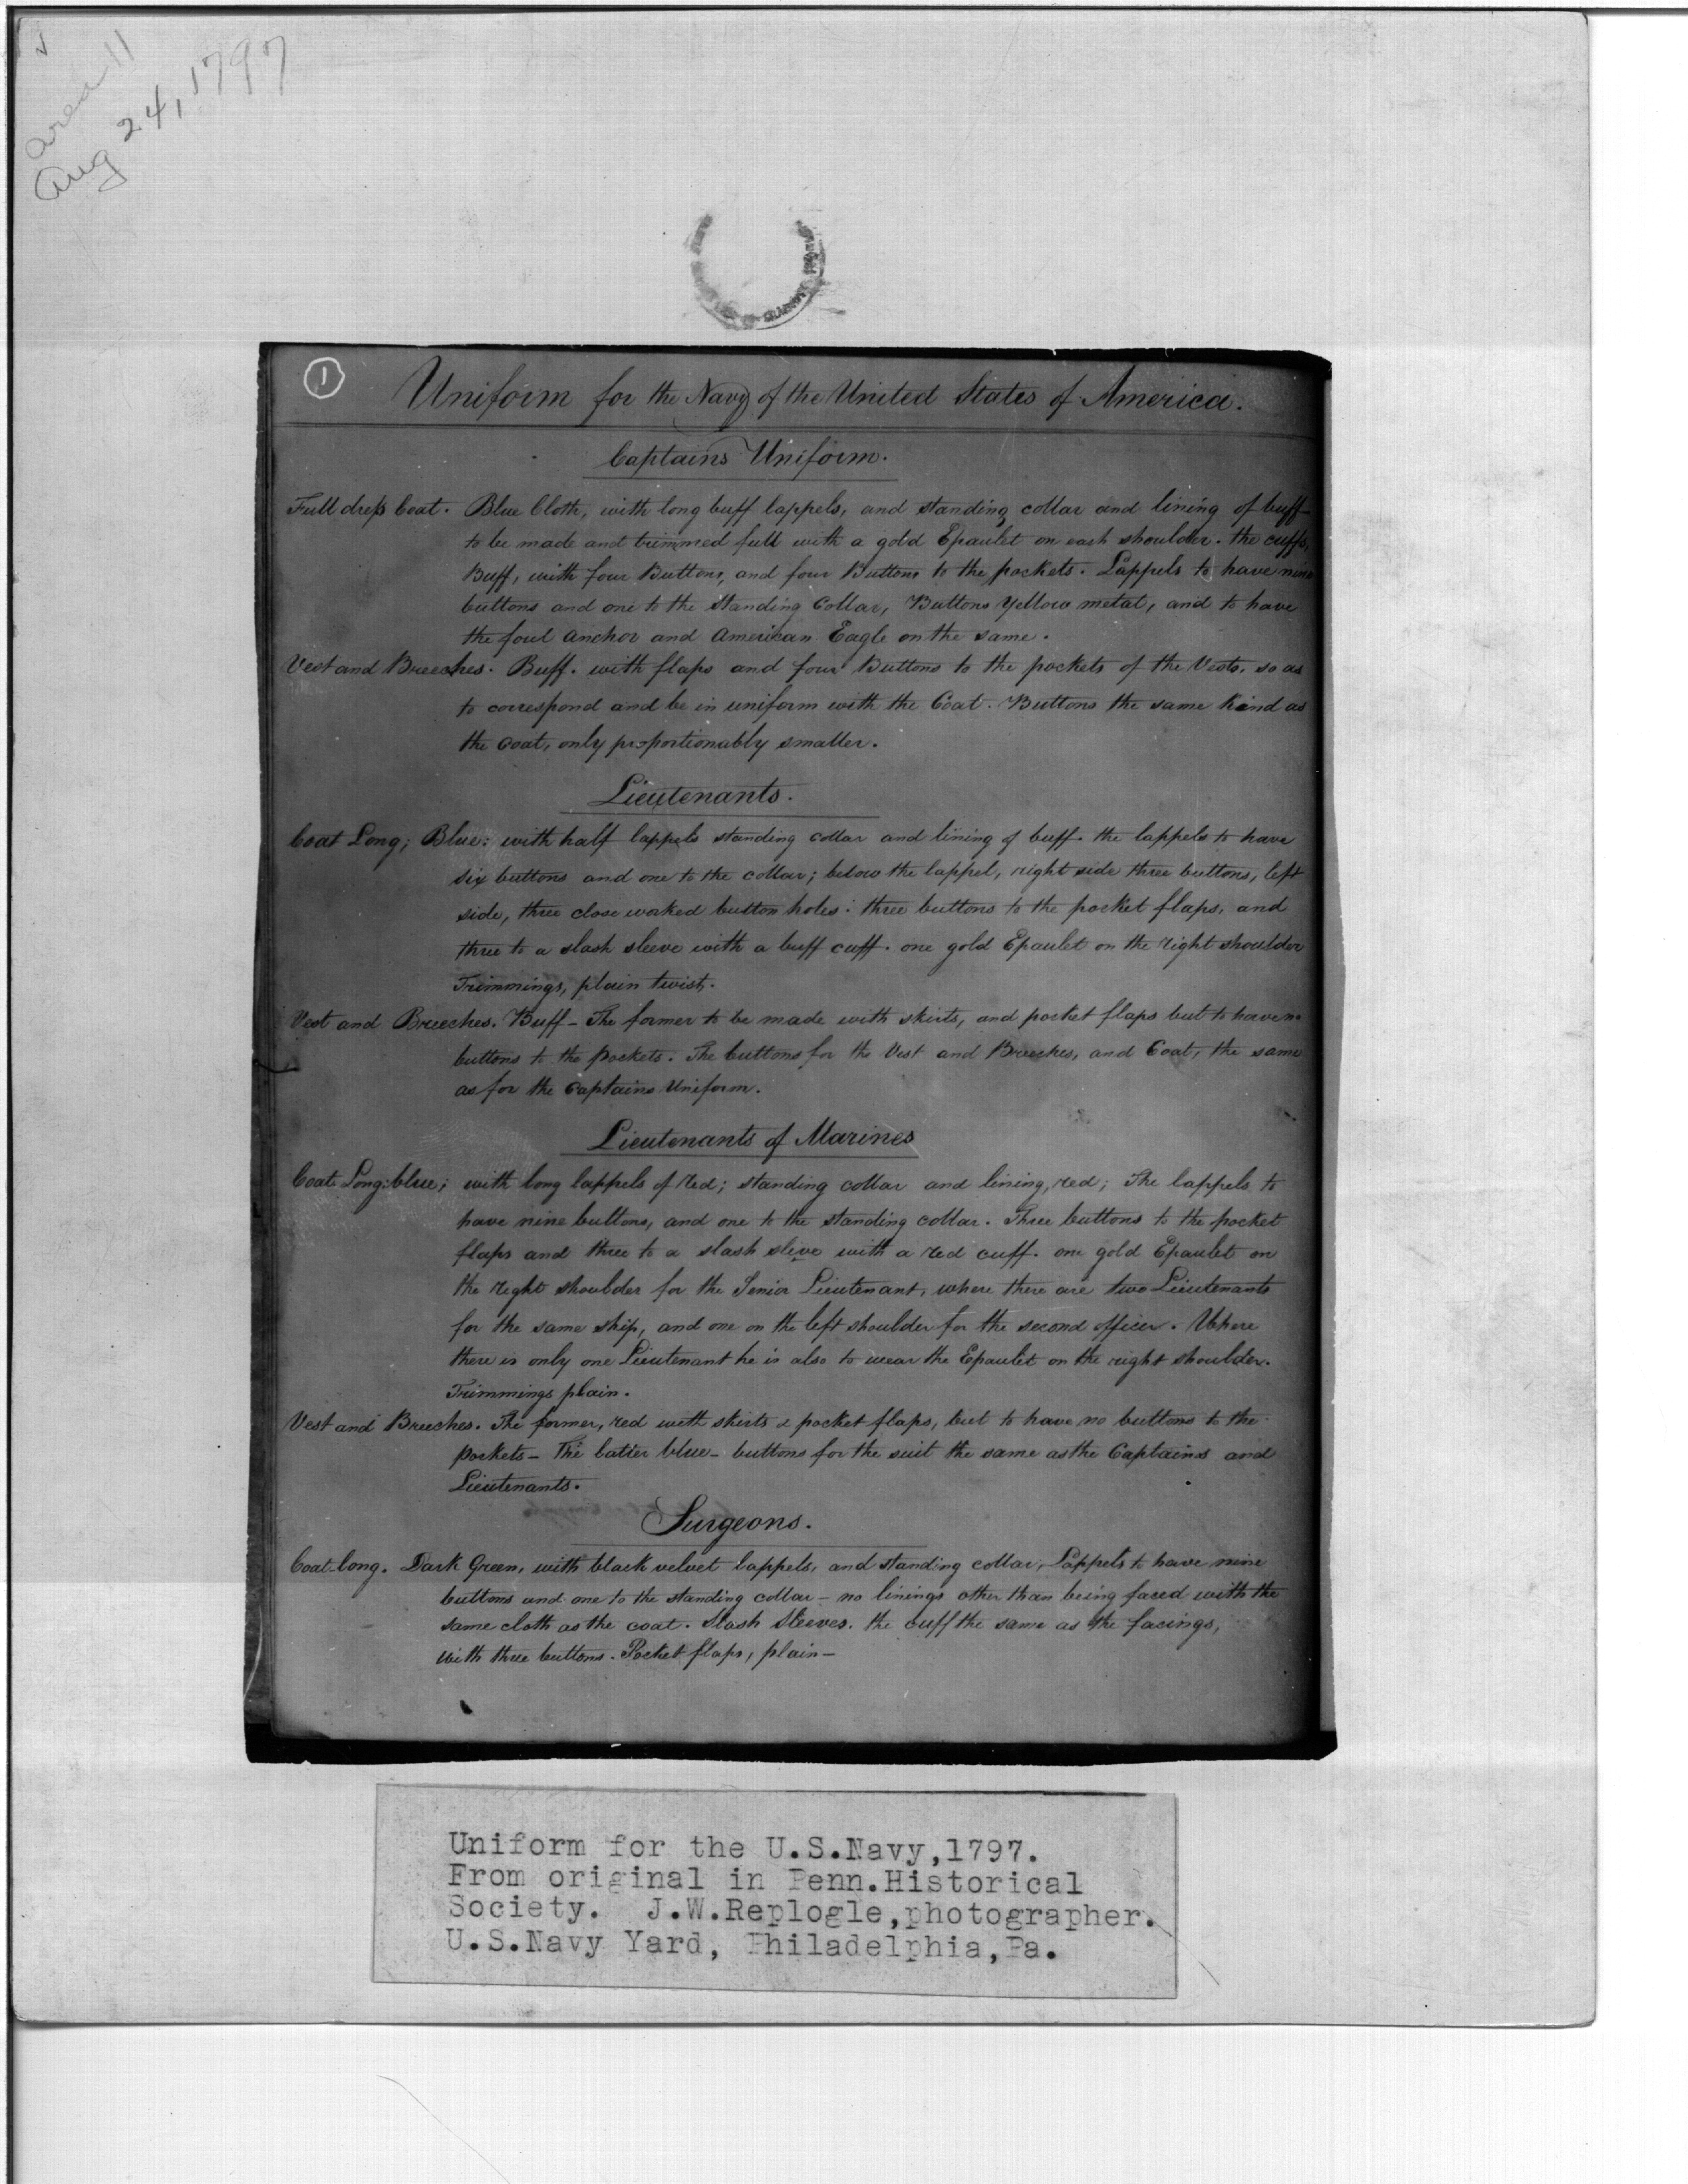 area 11
Aug 24, 1797
1
Uniform for the Navy of the United States of America.
Captains Uniform.
Full dress Coat. Blue Cloth, with long buff lappels, and standing collar and lining of buff—
to be made and trimmed full with a gold Epaulet on each shoulder. the cuffs,
Buff, with four Buttons, and four Buttons to the pockets. Lappels to have nine
buttons and one to the Standing Collar, Buttons Yellow metal, and to have
the foul anchor and American Eagle on the same.
Vest and Breeches. Buff. with flaps and four Buttons to the pockets of the Vests, so as
to correspond and be in uniform with the Coat. Buttons the same kind as
the Coat, only proportionably smaller.
Lieutenants.
Coat Long; Blue: with half lappels standing collar and lining of buff. the lappels to have
six buttons and one to the collar; below the lappel, right side three buttons, left
side, three close worked button holes: three buttons to the pocket flaps, and
three to a slash sleeve with a buff cuff. one gold Epaulet on the right shoulder
Trimmings, plain twist.
Vest and Breeches. Buff – The former to be made with skirts, and pocket flaps but to have no
buttons to the pockets. The buttons for the Vest and Breeches, and Coat, the same
as for the Captains Uniform.
Lieutenants of Marines
Coat Long: blue; with long lappels of Red; standing collar and lining, red; The lappels to
have nine buttons, and one to the standing collar. Three buttons to the pocket
flaps and three to a slash sleive with a red cuff. one gold Epaulet on
the right shoulder for the Senior Lieutenant, where there are two Lieutenants
for the same ship, and one on the left shoulder for the second officer. Where
there is only one Lieutenant he is also to wear the Epaulet on the right shoulder.
Trimmings plain.
Vest and Breeches. The former, red with skirts & pocket flaps, but to have no buttons to the
pockets – The latter blue – buttons for the suit the same as the Captains and
Lieutenants.
Surgeons.
Coat long. Dark Green, with black velvet lappels, and standing collar, Lappels to have nine
buttons and one to the standing collar – no linings other than being faced with the
same cloth as the coat. Slash Sleeves. the cuff the same as the facings,
with three buttons. Pocket flaps, plain –
Uniform for the U.S.Navy,1797.
From original in Penn.Historical
Society. J.W.Replogle,photographer.
U.S.Navy Yard, Philadelphia,Pa.